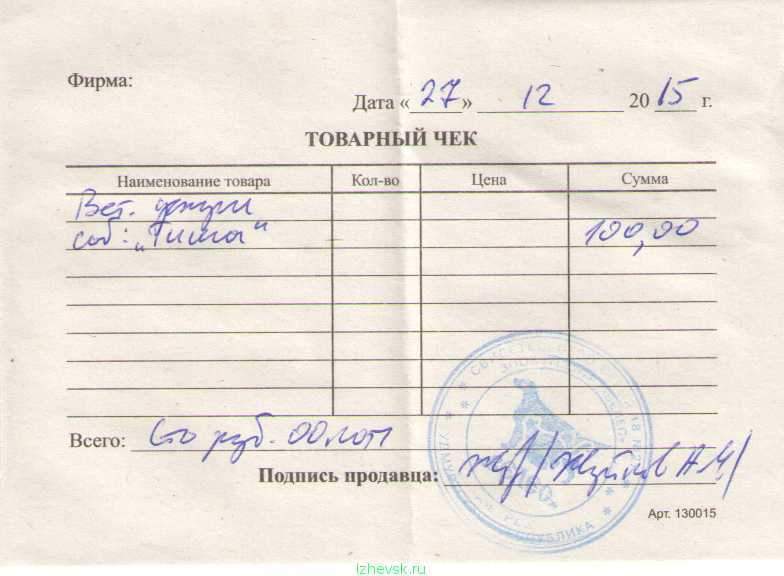 Фирма:
Дата «27» 12 2015 г.
ТОВАРНЫЙ ЧЕК
Наименование товара Кол-во Цена Сумма
Вет. услуги
соб: „Тиша“ 100,00
Всего: Сто руб. 00 коп
Подпись продавца:
РЕСПУБЛИКА
Арт. 130015
Izhevsk.ru